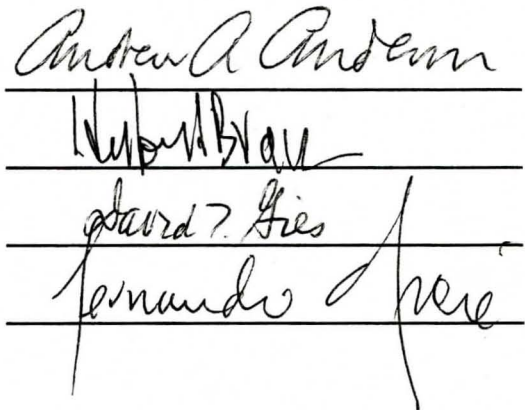 Andrew A Anderson
Herbert Braun
David T. Gies
Fernando Operé